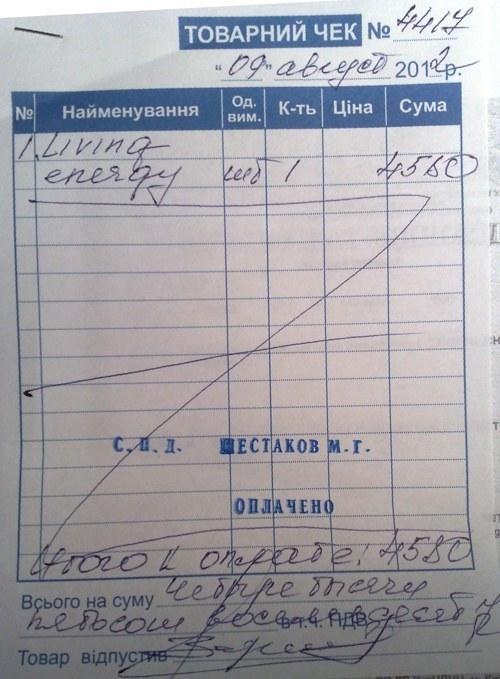 ТОВАРНИЙ ЧЕК № 4417
"09" август 2012 р.
№ Найменування Од. вим. К-ть Ціна Сума
1. Living
energy шт 1 4580
С.П.Д. ШЕСТАКОВ М.Г.
ОПЛАЧЕНО
Итого к оплате: 4580
Всього на суму Четыре тысячи
пятьсот восемьдесят в т.ч. ПДВ
Товар відпустив